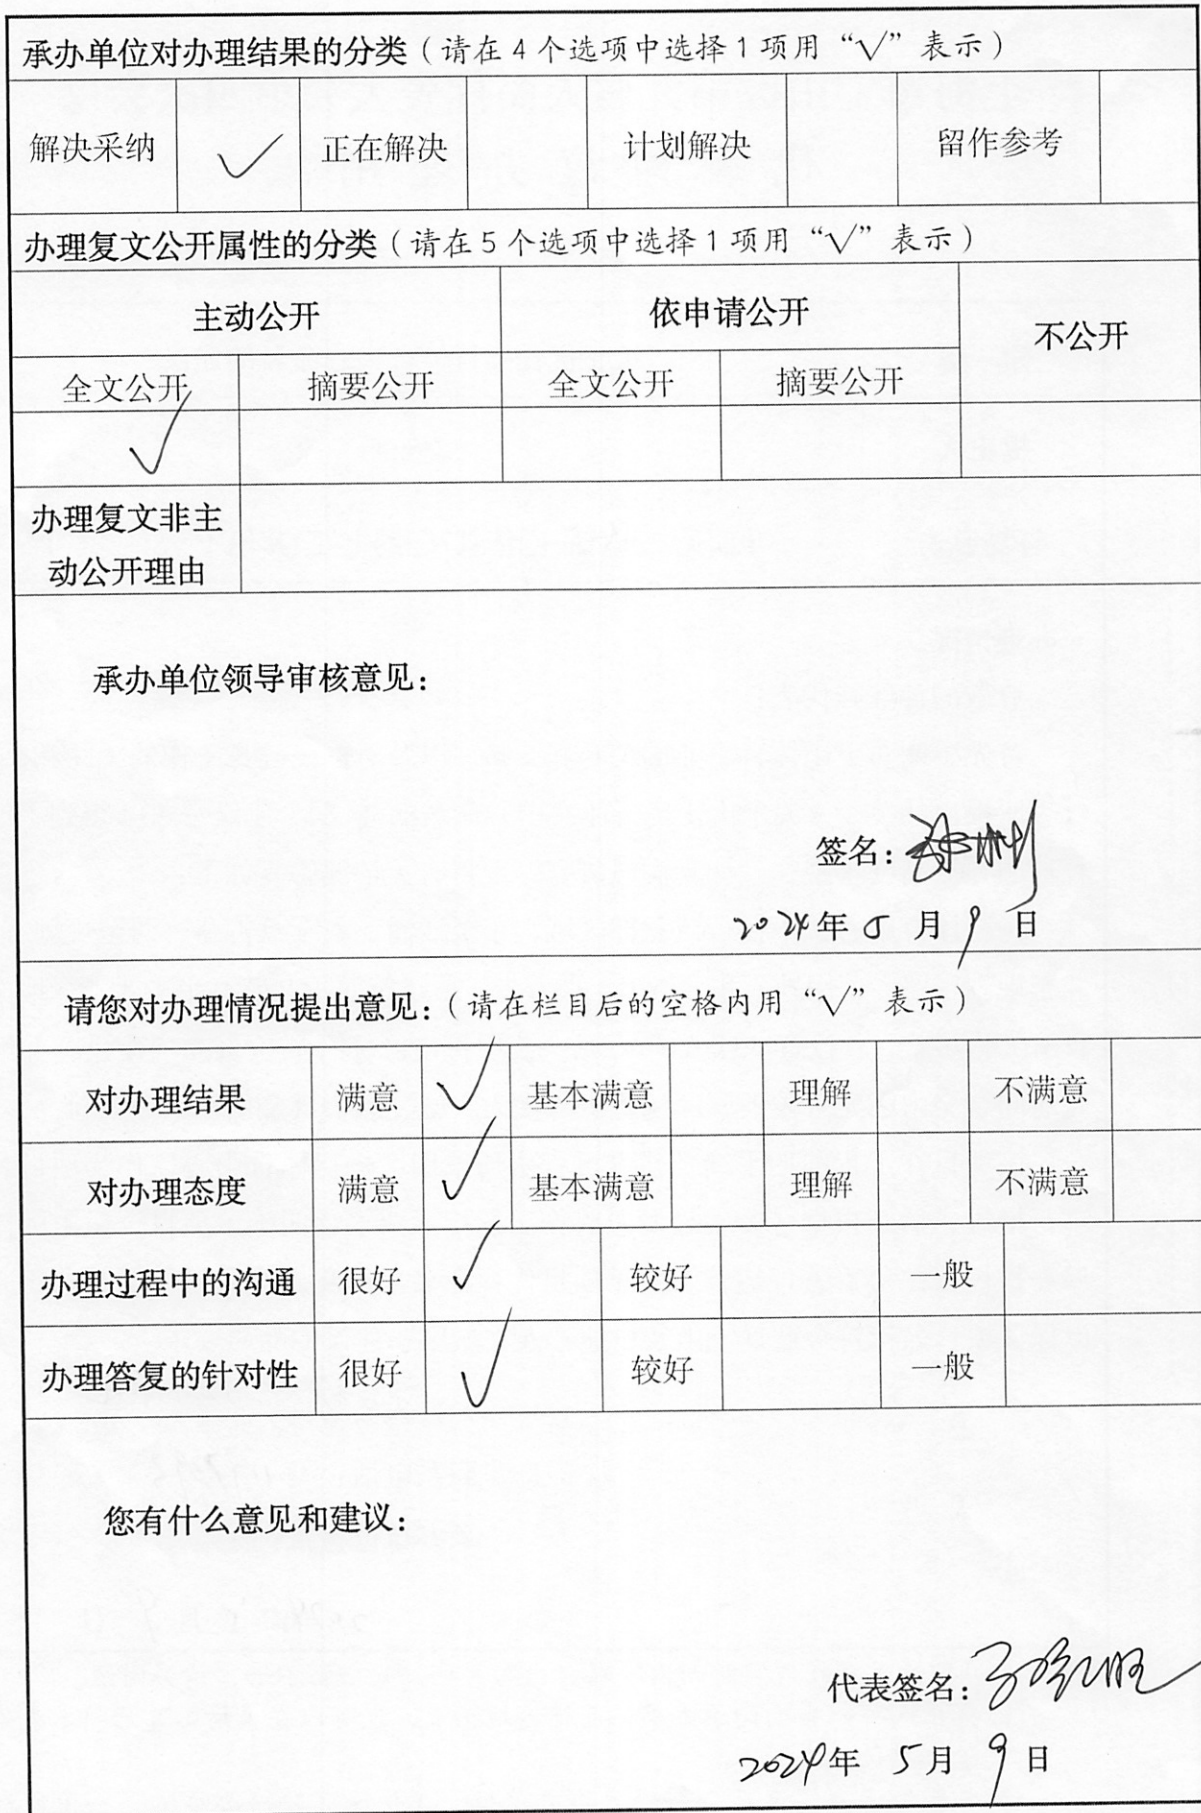 承办单位对办理结果的分类（请在4个选项中选择1项用“√”表示）
解决采纳 √ 正在解决 计划解决 留作参考
办理复文公开属性的分类（请在5个选项中选择1项用“√”表示）
主动公开 依申请公开 不公开
全文公开 摘要公开 全文公开 摘要公开
√
办理复文非主
动公开理由
承办单位领导审核意见：
签名：
2024年5月9日
请您对办理情况提出意见：（请在栏目后的空格内用“√”表示）
对办理结果 满意 √ 基本满意 理解 不满意
对办理态度 满意 √ 基本满意 理解 不满意
办理过程中的沟通 很好 √ 较好 一般
办理答复的针对性 很好 √ 较好 一般
您有什么意见和建议：
代表签名：
2024年5月9日